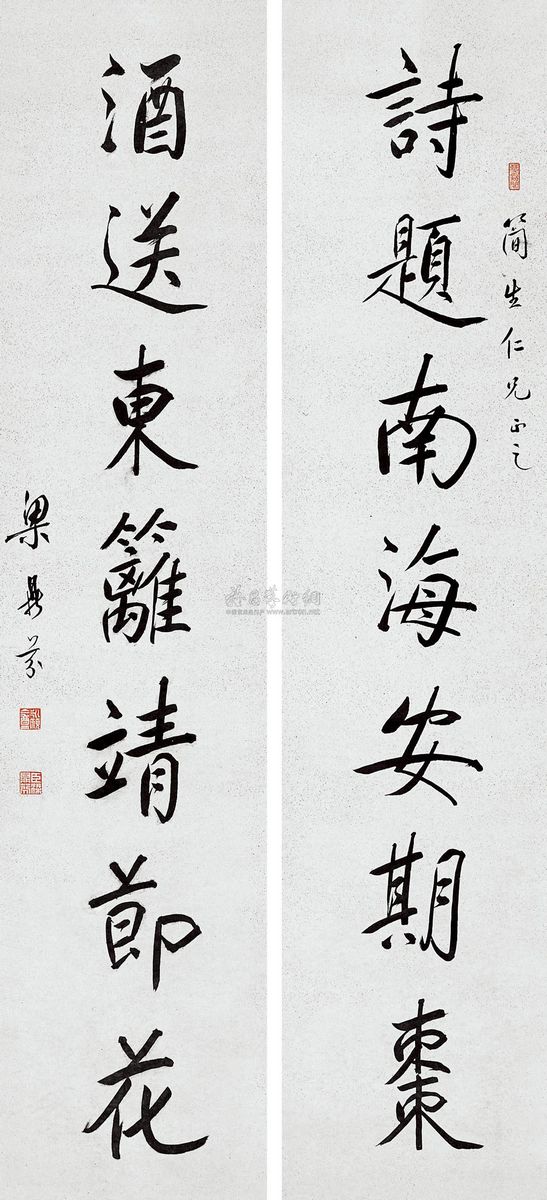 簡生仁兄正之
詩題南海安期棗
酒送東籬靖節花
梁鼎芬